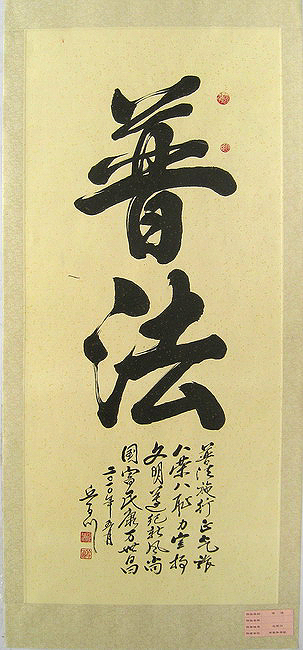 普法
普法施行正气
八荣八耻力宣扬
文明遵纪新风尚
国富民康万世昌
二〇一〇年五月